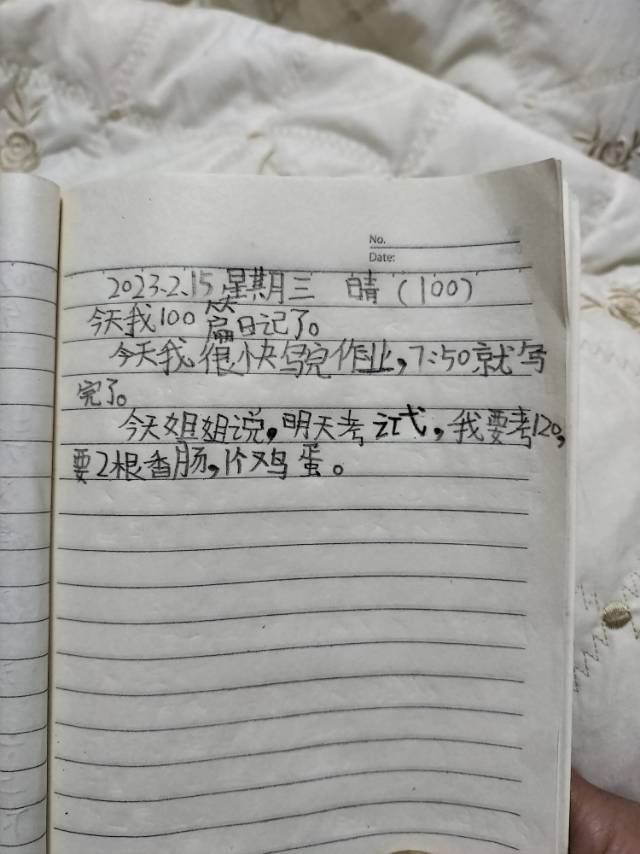 No.
Date:
2023.2.15 星期三 晴(100)
今天我100篇日记了。
今天我很快写完作业,7:50就写
完了。
今天姐姐说,明天考试,我要考120,
要2根香肠,1个鸡蛋。